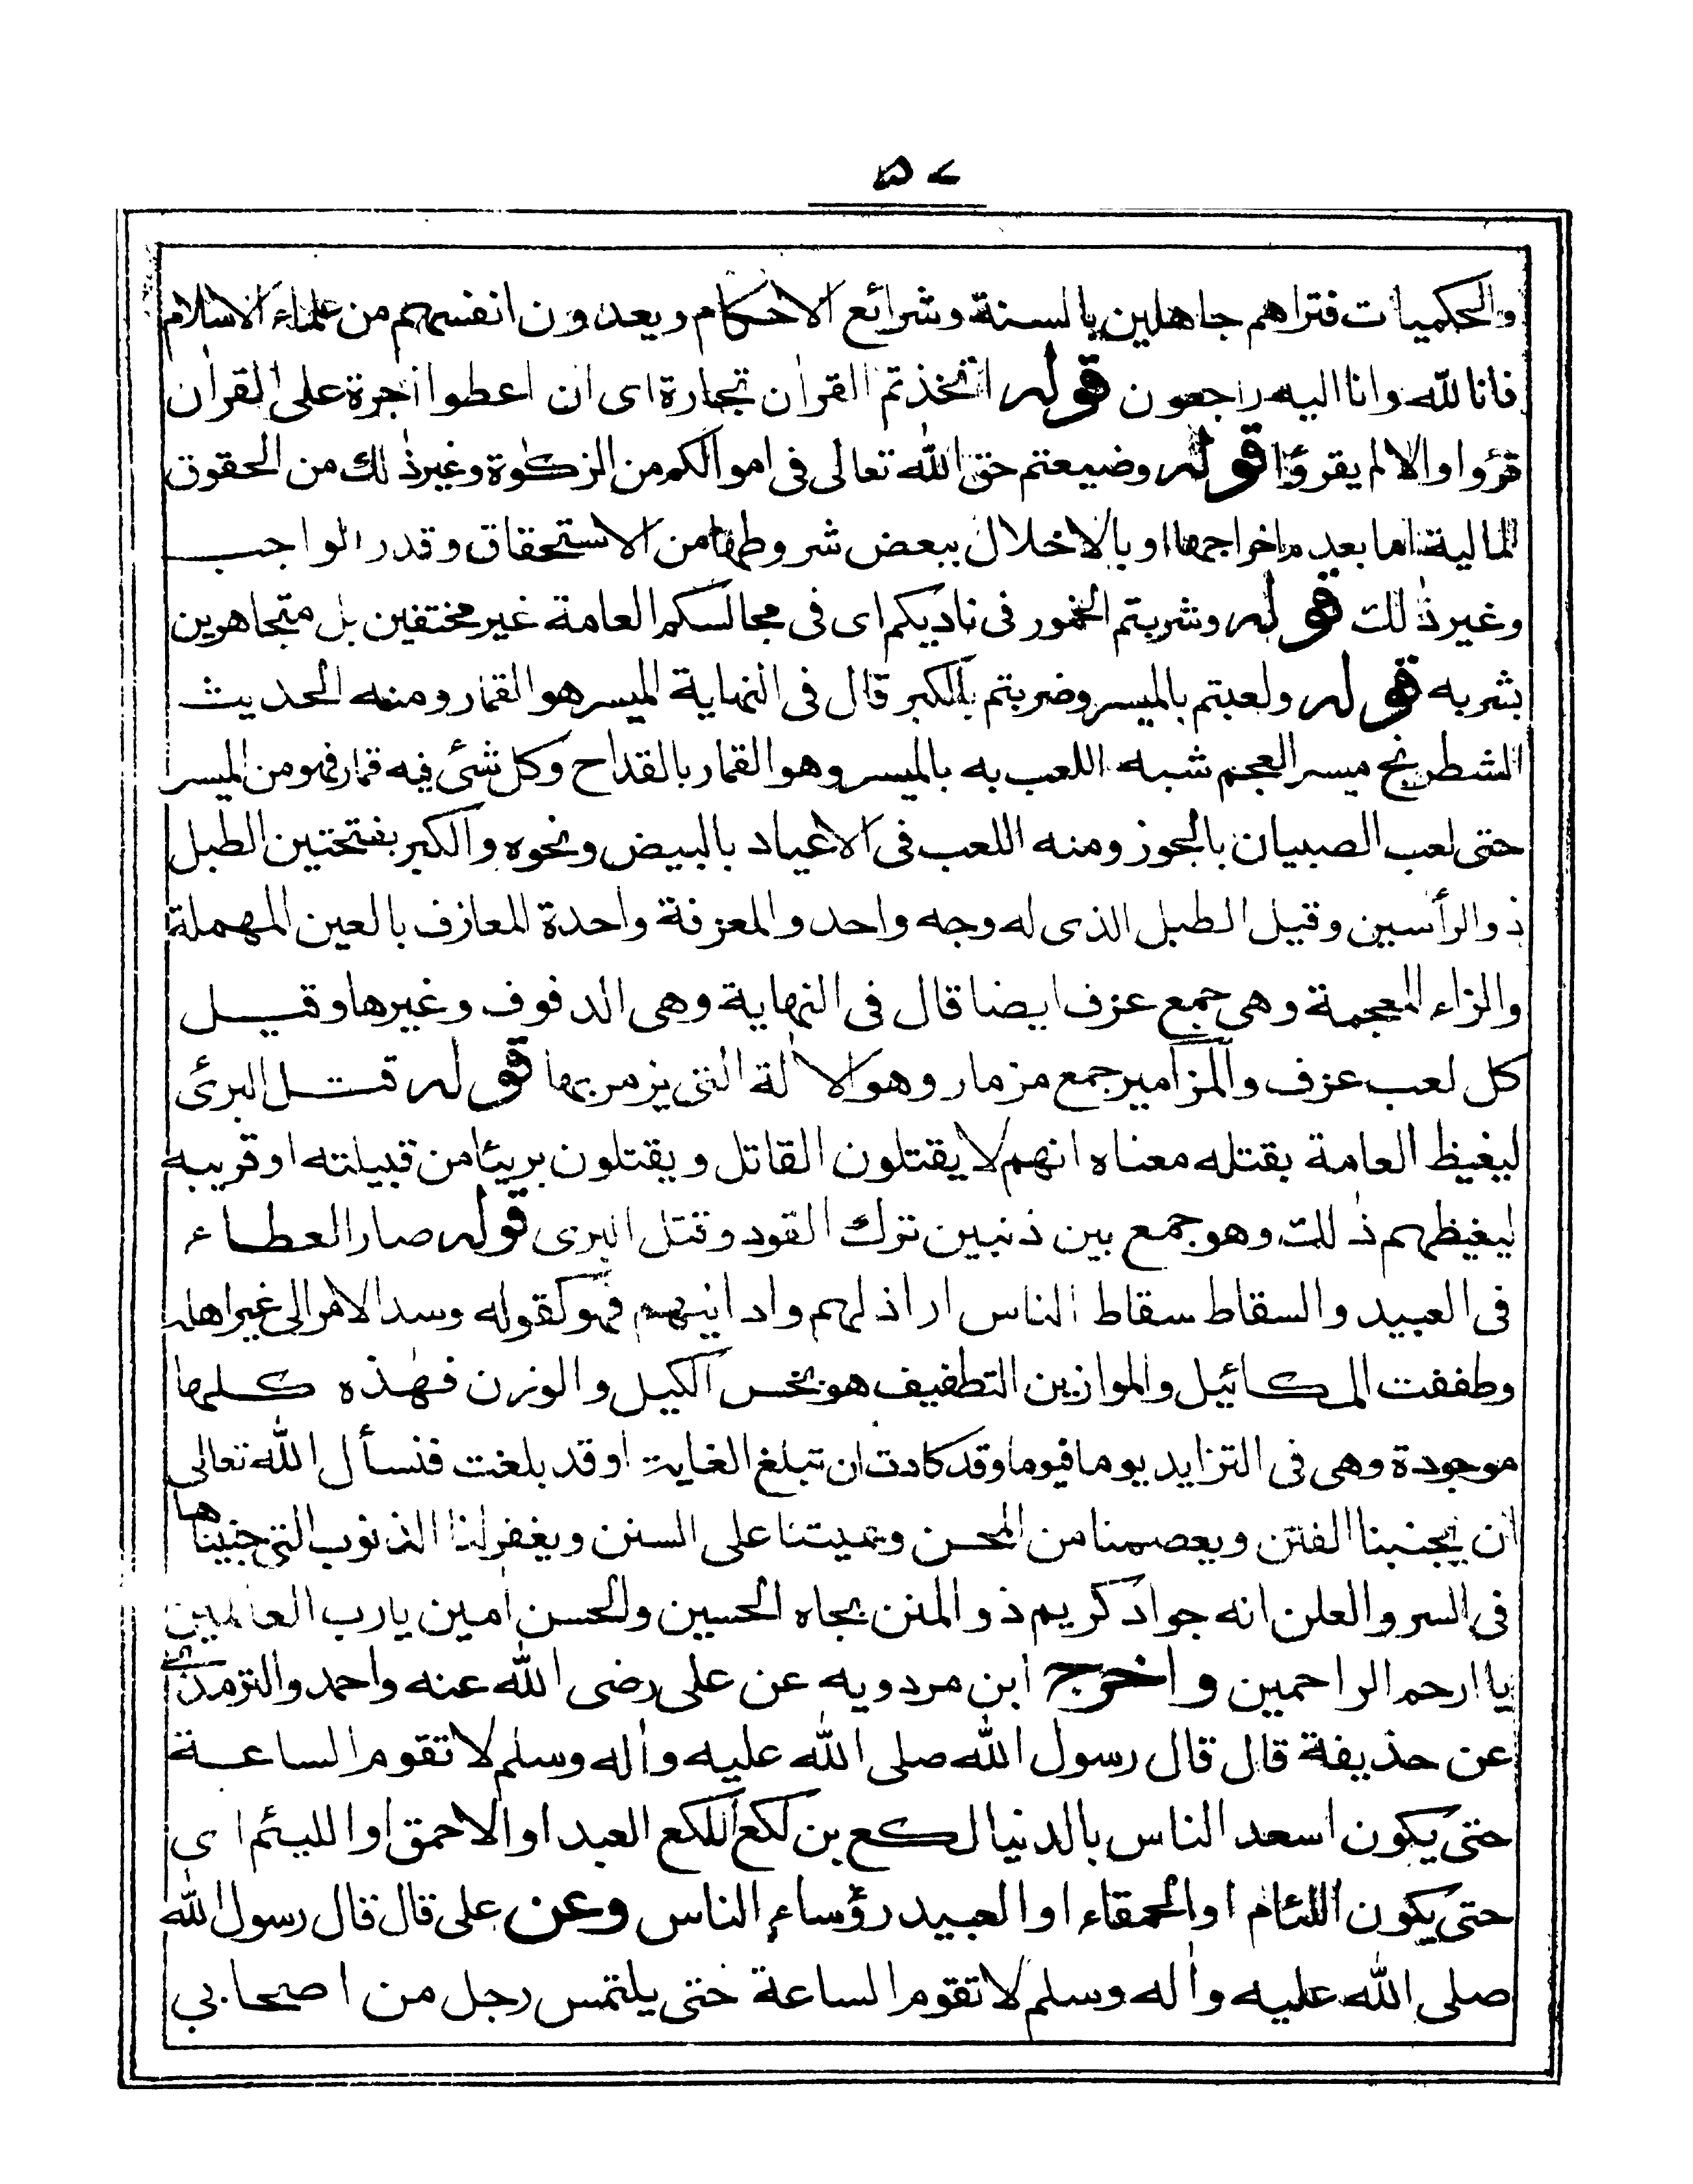 ٥٧
والحكميات فتراهم جاهلين بالسنة وشرائع الاحكام ويعدون انفسهم من علماء الاسلام
فانا لله وانا اليه راجعون قوله اتخذتم القراٰن تجارة اى ان اعطوا اجرة على القراٰن
قرؤا والا لم يقرؤا قوله وضيعتم حق الله تعالى فى اموالكم من الزكوٰة وغير ذٰلك من الحقوق
المالية اما بعدم اخراجها او بالاخلال ببعض شروطها من الاستحقاق وقدر الواجب
وغير ذٰلك قوله وشربتم الخمور فى ناديكم اى فى مجالسكم العامة غير مختفين بل متجاهرين
بشربه قوله ولعبتم بالميسر وضربتم بالكبر قال فى النهاية الميسر هو القمار ومنه الحديث
الشطرنج ميسر العجم شبه اللعب به بالميسر وهو القمار بالقداح وكل شئ فيه قمار فهو من الميسر
حتى لعب الصبيان بالجوز ومنه اللعب فى الاعياد بالبيض ونحوه والكبر بفتحتين الطبل
ذو الرأسين وقيل الطبل الذى له وجه واحد والمعزفة واحدة المعازف بالعين المهملة
والزاء المعجمة وهى جمع عزف ايضا قال فى النهاية وهى الدفوف وغيرها وقيل
كل لعب عزف والمزامير جمع مزمار وهو الاٰلة التى يزمر بها قوله قتل البرئ
ليغيظ العامة بقتله معناه انهم لا يقتلون القاتل ويقتلون بريئا من قبيلته او قريبه
ليغيظهم ذٰلك وهو جمع بين ذنبين ترك القود وقتل البرى قوله صار العطاء
فى العبيد والسقاط سقاط الناس اراذلهم وادانيهم فهو كقوله وسد الامر الى غير اهله
وطففت المكائيل والموازين التطفيف هو بخس الكيل والوزن فهٰذه كلها
موجودة وهى فى التزايد يوما فيوما وقد كادت ان تبلغ الغاية او قد بلغت فنسأل الله تعالى
ان يجنبنا الفتن ويعصمنا من المحن ويميتنا على السنن ويغفر لنا الذنوب التى جنيناها
فى السر والعلن انه جواد كريم ذو المنن بجاه الحسين والحسن اٰمين يا رب العالمين
يا ارحم الراحمين واخرج ابن مردويه عن على رضى الله عنه واحمد والترمذى
عن حذيفة قال قال رسول الله صلى الله عليه واٰله وسلم لا تقوم الساعة
حتى يكون اسعد الناس بالدنيا لكع بن لكع اللكع العبد او الاحمق او اللئيم اى
حتى يكون اللئام او الحمقاء او العبيد رؤساء الناس وعن على قال قال رسول الله
صلى الله عليه واٰله وسلم لا تقوم الساعة حتى يلتمس رجل من اصحابى